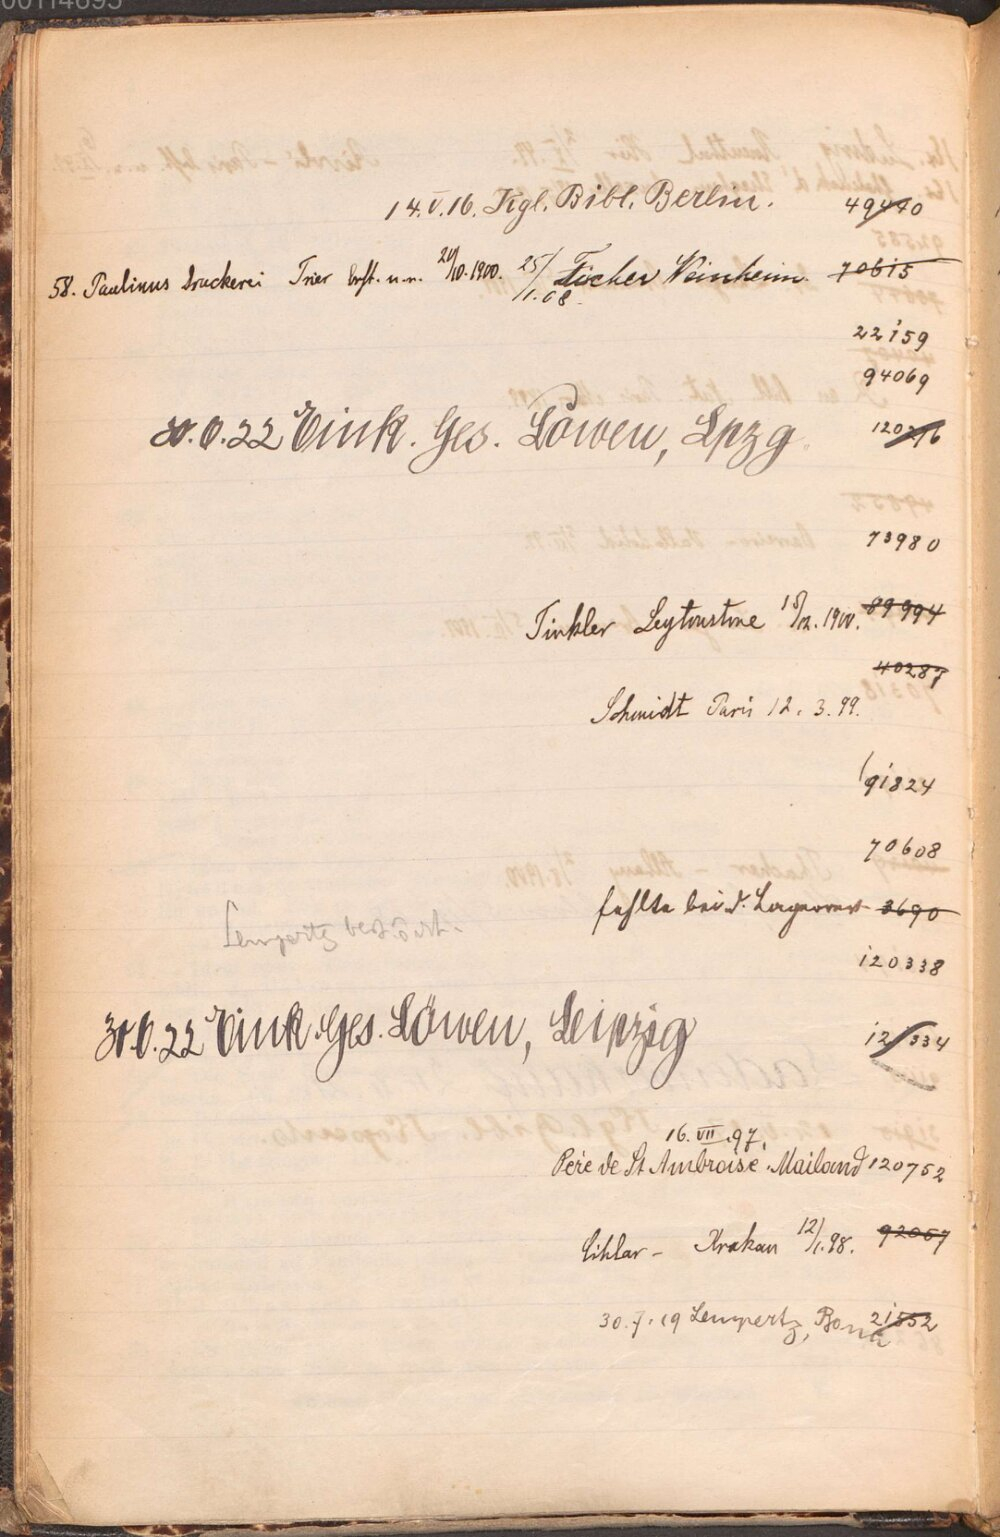 00114695
14.V.16. Kgl. Bibl. Berlin. 49440
58. Paulinus Druckerei Trier 24/10.1900. 25/1.08. Fischer Weinheim. 70615
22159
94069
22 Eink. Ges. Löwen, Lpzg. 120216
73980
Tinkler Leytonstone 15/12.1900. 89994
40287
Schmidt Paris 12.3.99.
91824
70608
fehlte bei d. 3690
Lempertz
120338
22 Eink. Ges. Löwen, Leipzig 12 334
16.VII.97.
Père de St Ambroise. Mailand 120752
Cihlar - Krakau 12/1.98. 92067
30.7.19 Lempertz, Bonn 21552